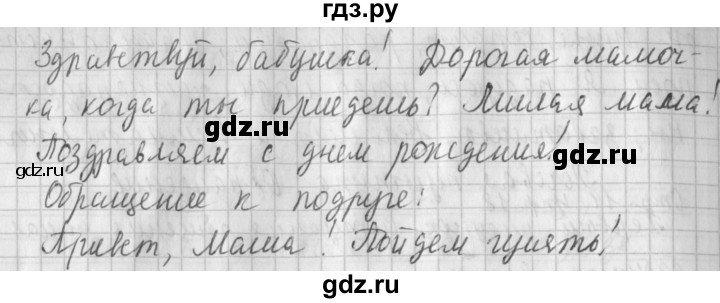 гдз.ру
Здравствуй, бабушка! Дорогая мамоч-
ка, когда ты приедешь? Милая мама!
gdz.ru
Поздравляем с днем рождения!
gdz.ru
gdz.ru
Обращение к подруге:
Привет, Маша! Пойдем гулять!
gdz.ru